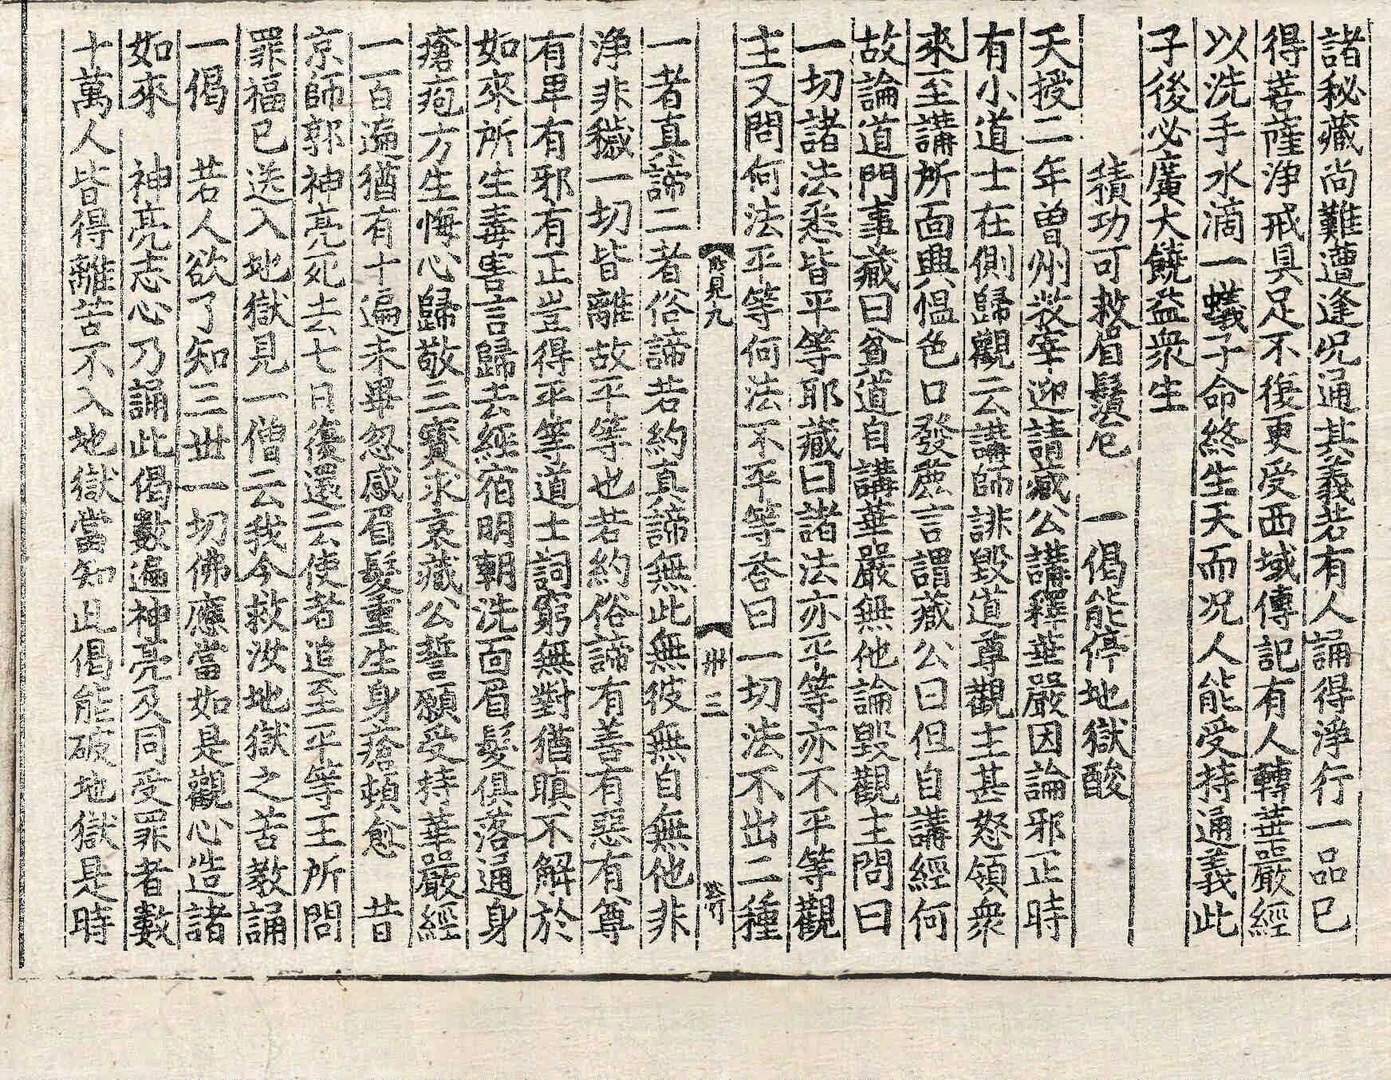 諸秘藏尚難遭逢况通其義若有人誦得淨行一品已
得菩薩淨戒具足不復更受西域傳記有人轉華嚴經
以洗手水滴一蟻子命終生天而况人能受持通義此
子後必廣大饒益衆生
積功可救眉鬚厄　一偈能停地獄酸
天授二年曽州牧宰迎請藏公講釋華嚴因論邪正時
有小道士在側歸觀云講師誹毀道尊觀主甚怒領衆
來至講所面興愠色口發麁言謂藏公曰但自講經何
故論道門事藏曰貧道自講華嚴無他論毀觀主問曰
一切諸法悉皆平等耶藏曰諸法亦平等亦不平等觀
主又問何法平等何法不平等荅曰一切法不出二種
見九
卅二
一者真諦二者俗諦若約真諦無此無彼無自無他非
淨非穢一切皆離故平等也若約俗諦有善有惡有尊
有卑有邪有正豈得平等道士詞窮無對猶瞋不解於
如來所生毒害言歸去經宿明朝洗面眉髮俱落通身
瘡疱方生悔心歸敬三寶求哀藏公誓願受持華嚴經
一百遍猶有十遍未畢忽感眉髮重生身瘡頓愈　昔
京師郭神亮死去七日復還云使者追至平等王所問
罪福已送入地獄見一僧云我今救汝地獄之苦教誦
一偈　若人欲了知三世一切佛應當如是觀心造諸
如來　神亮志心乃誦此偈數遍神亮及同受罪者數
十萬人皆得離苦不入地獄當知此偈能破地獄是時